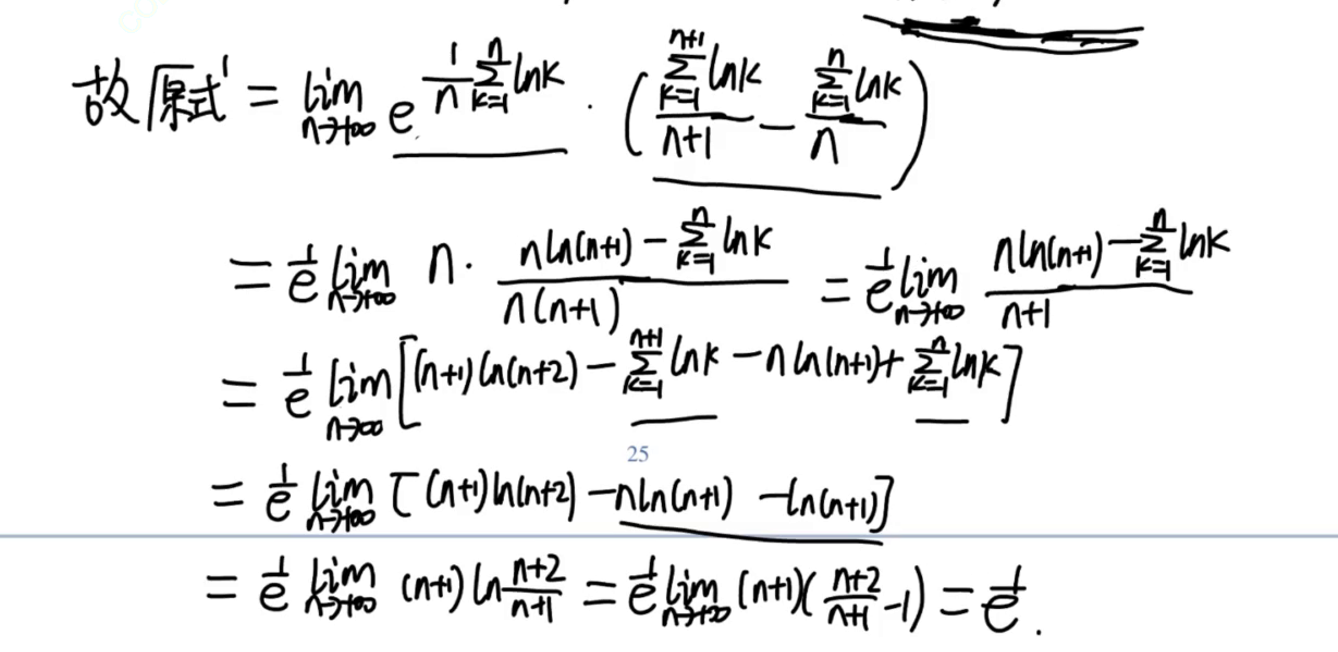 故原式 = lim_{n→+∞} e^{\frac{1}{n}\sum_{k=1}^{n} ln k} · ( \frac{\sum_{k=1}^{n+1} ln k}{n+1} - \frac{\sum_{k=1}^{n} ln k}{n} )
= \frac{1}{e} lim_{n→+∞} n · \frac{n ln(n+1) - \sum_{k=1}^{n} ln k}{n(n+1)} = \frac{1}{e} lim_{n→+∞} \frac{n ln(n+1) - \sum_{k=1}^{n} ln k}{n+1}
= \frac{1}{e} lim_{n→∞} [(n+1) ln(n+2) - \sum_{k=1}^{n+1} ln k - n ln(n+1) + \sum_{k=1}^{n} ln k]
25
= \frac{1}{e} lim_{n→+∞} [(n+1) ln(n+2) - n ln(n+1) - ln(n+1)]
= \frac{1}{e} lim_{n→+∞} (n+1) ln \frac{n+2}{n+1} = \frac{1}{e} lim_{n→+∞} (n+1)( \frac{n+2}{n+1} - 1) = \frac{1}{e} .